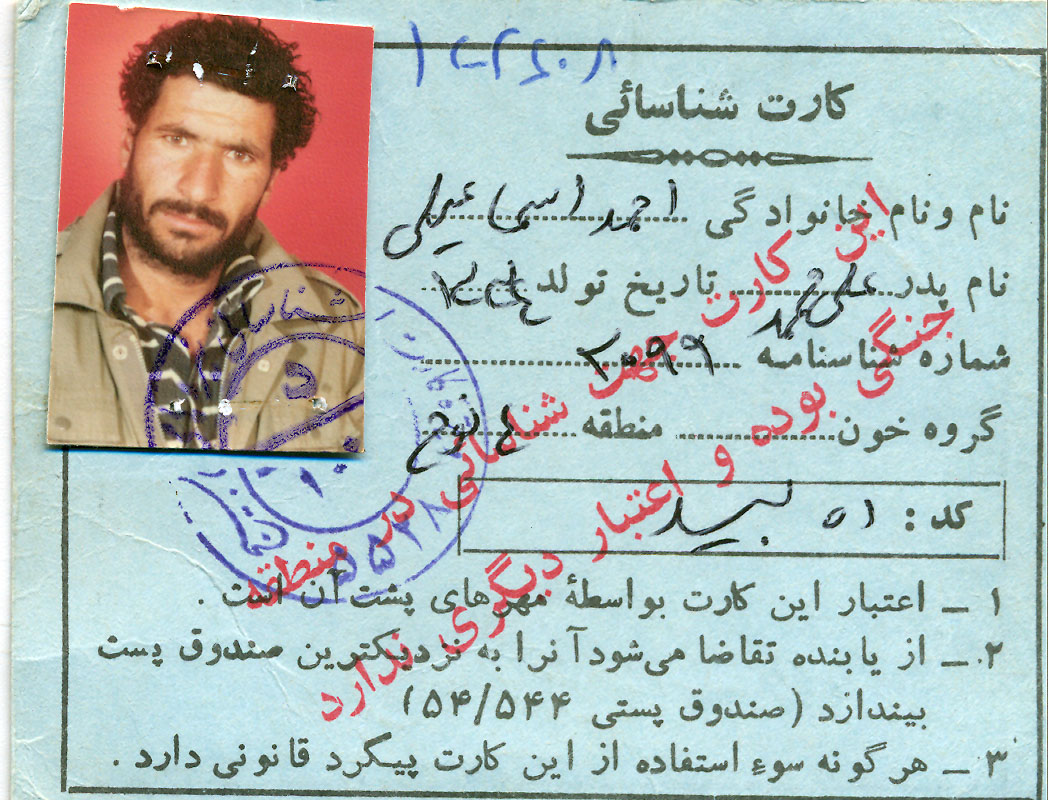 کارت شناسائی
نام و نام خانوادگی احمد اسماعیلی
نام پدر علی محمد تاریخ تولد
شماره شناسنامه ۲۰۹۹
گروه خون منطقه
کد : ۵۱
۱ ـ اعتبار این کارت بواسطهٔ مهرهای پشت آن است .
۲ ـ از یابنده تقاضا می‌شود آنرا به نزدیکترین صندوق پست
بیندازد (صندوق پستی ۵۴/۵۴۴)
۳ ـ هرگونه سوءِ استفاده از این کارت پیگرد قانونی دارد .
این کارت جهت شناسائی در منطقه
جنگی بوده و اعتبار دیگری ندارد